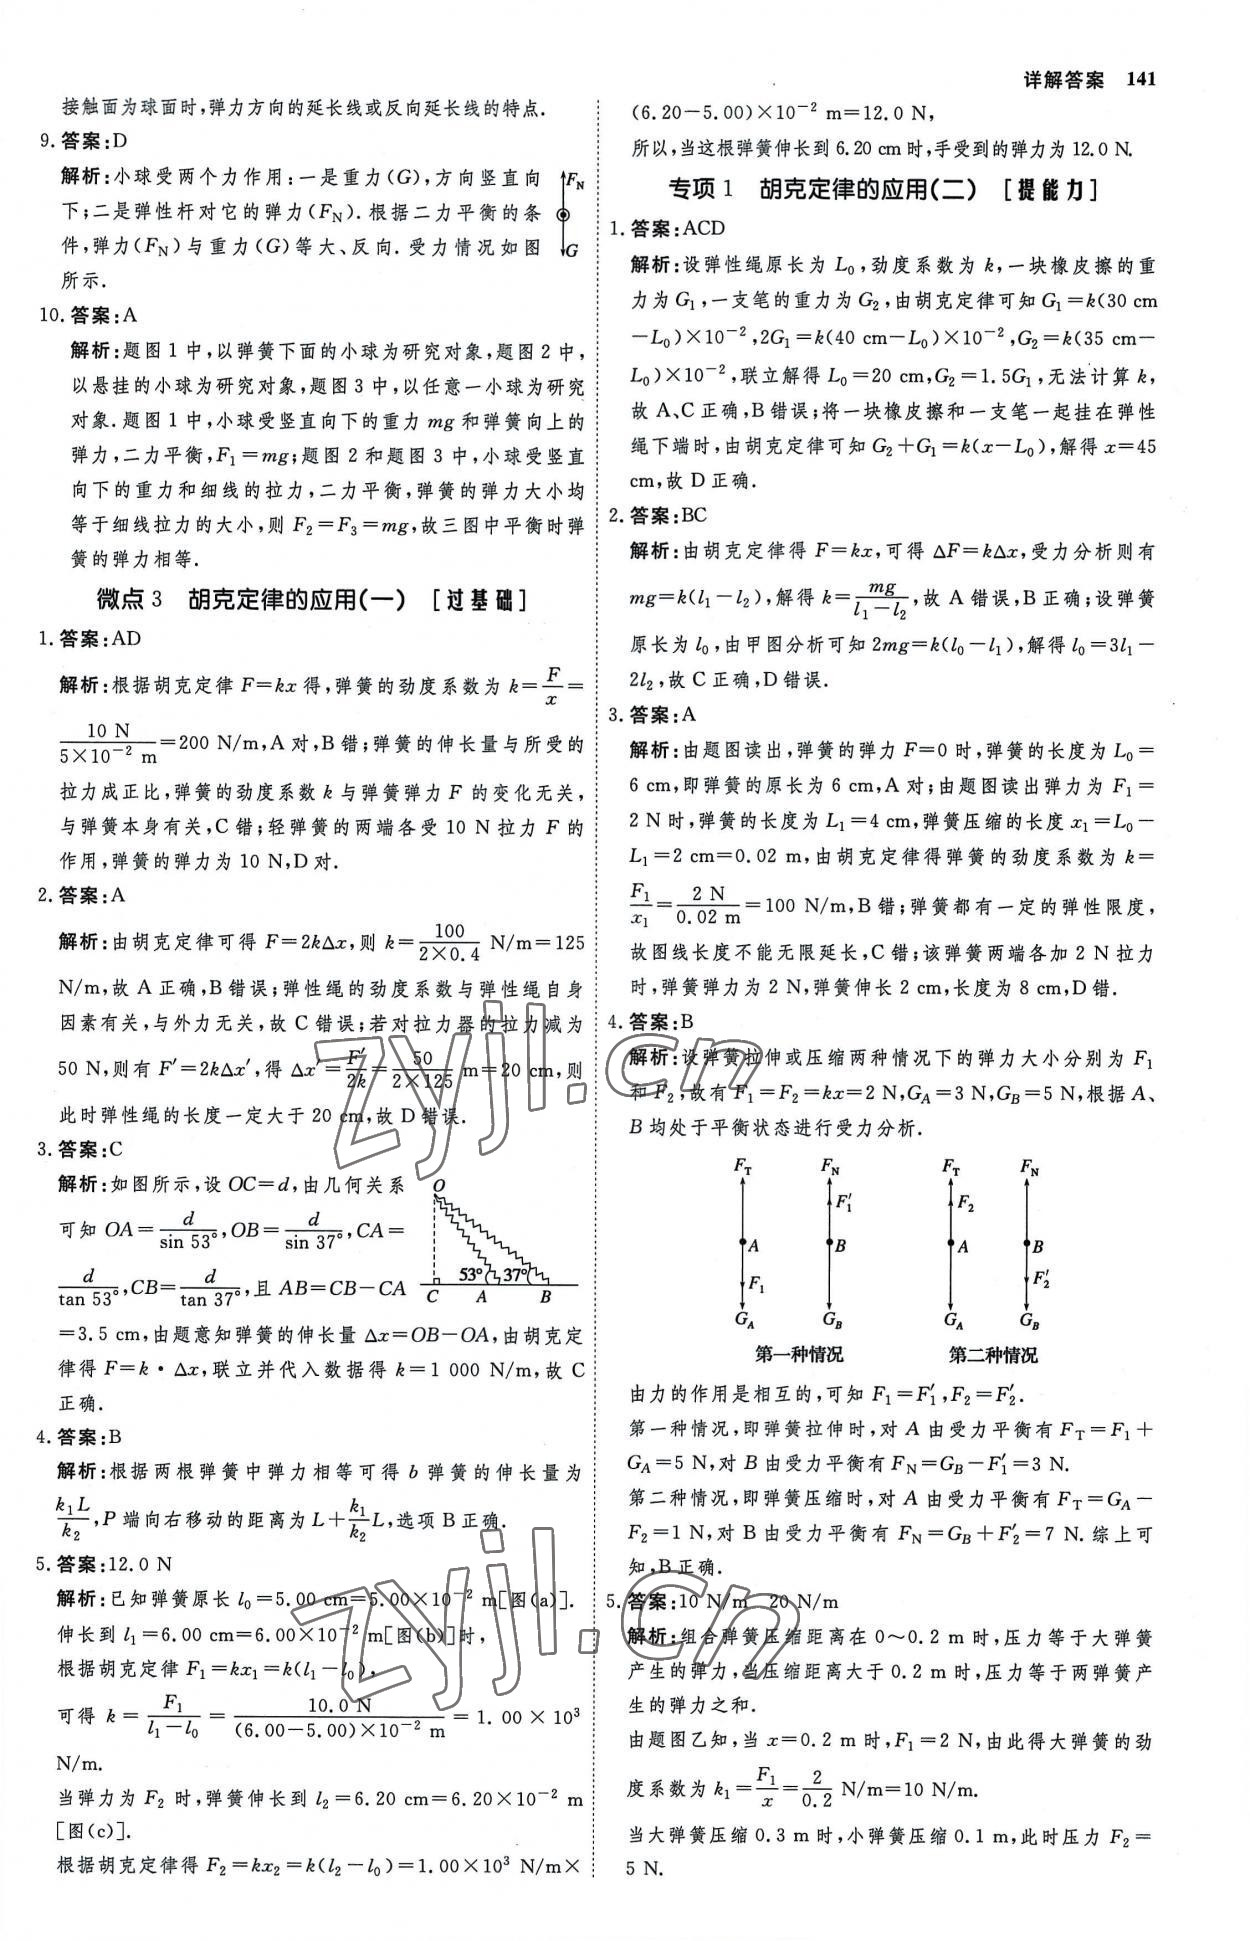 详解答案 141
接触面为球面时,弹力方向的延长线或反向延长线的特点.
9. 答案:D
解析:小球受两个力作用:一是重力(G),方向竖直向
下;二是弹性杆对它的弹力(F_N). 根据二力平衡的条
件,弹力(F_N)与重力(G)等大、反向. 受力情况如图
所示.
F_N
G
10. 答案:A
解析:题图1中,以弹簧下面的小球为研究对象,题图2中,
以悬挂的小球为研究对象,题图3中,以任意一小球为研究
对象. 题图1中,小球受竖直向下的重力 mg 和弹簧向上的
弹力,二力平衡,F₁=mg;题图2和题图3中,小球受竖直
向下的重力和细线的拉力,二力平衡,弹簧的弹力大小均
等于细线拉力的大小,则 F₂=F₃=mg,故三图中平衡时弹
簧的弹力相等.
微点3 胡克定律的应用(一) [过基础]
1. 答案:AD
解析:根据胡克定律 F=kx 得,弹簧的劲度系数为 k=F/x=
10 N/(5×10⁻² m)=200 N/m,A对,B错;弹簧的伸长量与所受的
拉力成正比,弹簧的劲度系数 k 与弹簧弹力 F 的变化无关,
与弹簧本身有关,C错;轻弹簧的两端各受 10 N拉力 F 的
作用,弹簧的弹力为 10 N,D对.
2. 答案:A
解析:由胡克定律可得 F=2kΔx,则 k=100/(2×0.4) N/m=125
N/m,故 A 正确,B错误;弹性绳的劲度系数与弹性绳自身
因素有关,与外力无关,故 C 错误;若对拉力器的拉力减为
50 N,则有 F′=2kΔx′,得 Δx′=F′/2k=50/(2×125) m=20 cm,则
此时弹性绳的长度一定大于 20 cm,故 D 错误.
3. 答案:C
解析:如图所示,设 OC=d,由几何关系
可知 OA=d/sin 53°,OB=d/sin 37°,CA=
d/tan 53°,CB=d/tan 37°,且 AB=CB-CA
O
53° 37°
C A B
=3.5 cm,由题意知弹簧的伸长量 Δx=OB-OA,由胡克定
律得 F=k·Δx,联立并代入数据得 k=1 000 N/m,故 C
正确.
4. 答案:B
解析:根据两根弹簧中弹力相等可得 b 弹簧的伸长量为
k₁L/k₂,P 端向右移动的距离为 L+(k₁/k₂)L,选项 B 正确.
5. 答案:12.0 N
解析:已知弹簧原长 l₀=5.00 cm=5.00×10⁻² m[图(a)].
伸长到 l₁=6.00 cm=6.00×10⁻² m[图(b)]时,
根据胡克定律 F₁=kx₁=k(l₁-l₀),
可得 k=F₁/(l₁-l₀)=10.0 N/((6.00-5.00)×10⁻² m)=1.00×10³
N/m.
当弹力为 F₂ 时,弹簧伸长到 l₂=6.20 cm=6.20×10⁻² m
[图(c)].
根据胡克定律得 F₂=kx₂=k(l₂-l₀)=1.00×10³ N/m×
(6.20-5.00)×10⁻² m=12.0 N,
所以,当这根弹簧伸长到6.20 cm时,手受到的弹力为12.0 N.
专项1 胡克定律的应用(二) [提能力]
1. 答案:ACD
解析:设弹性绳原长为 L₀,劲度系数为 k,一块橡皮擦的重
力为 G₁,一支笔的重力为 G₂,由胡克定律可知 G₁=k(30 cm
-L₀)×10⁻²,2G₁=k(40 cm-L₀)×10⁻²,G₂=k(35 cm-
L₀)×10⁻²,联立解得 L₀=20 cm,G₂=1.5G₁,无法计算 k,
故 A、C 正确,B错误;将一块橡皮擦和一支笔一起挂在弹性
绳下端时,由胡克定律可知 G₂+G₁=k(x-L₀),解得 x=45
cm,故 D 正确.
2. 答案:BC
解析:由胡克定律得 F=kx,可得 ΔF=kΔx,受力分析则有
mg=k(l₁-l₂),解得 k=mg/(l₁-l₂),故 A 错误,B正确;设弹簧
原长为 l₀,由甲图分析可知 2mg=k(l₀-l₁),解得 l₀=3l₁-
2l₂,故 C 正确,D错误.
3. 答案:A
解析:由题图读出,弹簧的弹力 F=0 时,弹簧的长度为 L₀=
6 cm,即弹簧的原长为 6 cm,A对;由题图读出弹力为 F₁=
2 N时,弹簧的长度为 L₁=4 cm,弹簧压缩的长度 x₁=L₀-
L₁=2 cm=0.02 m,由胡克定律得弹簧的劲度系数为 k=
F₁/x₁=2 N/0.02 m=100 N/m,B错;弹簧都有一定的弹性限度,
故图线长度不能无限延长,C错;该弹簧两端各加 2 N拉力
时,弹簧弹力为 2 N,弹簧伸长 2 cm,长度为 8 cm,D错.
4. 答案:B
解析:设弹簧拉伸或压缩两种情况下的弹力大小分别为 F₁
和 F₂,故有 F₁=F₂=kx=2 N,G_A=3 N,G_B=5 N,根据 A、
B 均处于平衡状态进行受力分析.
F_T F_N F_T F_N
F₁′ F₂
A B A B
F₁ F₂′
G_A G_B G_A G_B
第一种情况 第二种情况
由力的作用是相互的,可知 F₁=F₁′,F₂=F₂′.
第一种情况,即弹簧拉伸时,对 A 由受力平衡有 F_T=F₁+
G_A=5 N,对 B 由受力平衡有 F_N=G_B-F₁′=3 N.
第二种情况,即弹簧压缩时,对 A 由受力平衡有 F_T=G_A-
F₂=1 N,对 B 由受力平衡有 F_N=G_B+F₂′=7 N. 综上可
知,B正确.
5. 答案:10 N/m 20 N/m
解析:组合弹簧压缩距离在 0～0.2 m时,压力等于大弹簧
产生的弹力,当压缩距离大于 0.2 m时,压力等于两弹簧产
生的弹力之和.
由题图乙知,当 x=0.2 m时,F₁=2 N,由此得大弹簧的劲
度系数为 k₁=F₁/x=2/0.2 N/m=10 N/m.
当大弹簧压缩 0.3 m时,小弹簧压缩 0.1 m,此时压力 F₂=
5 N.
zyjl.cn
zyjl.cn